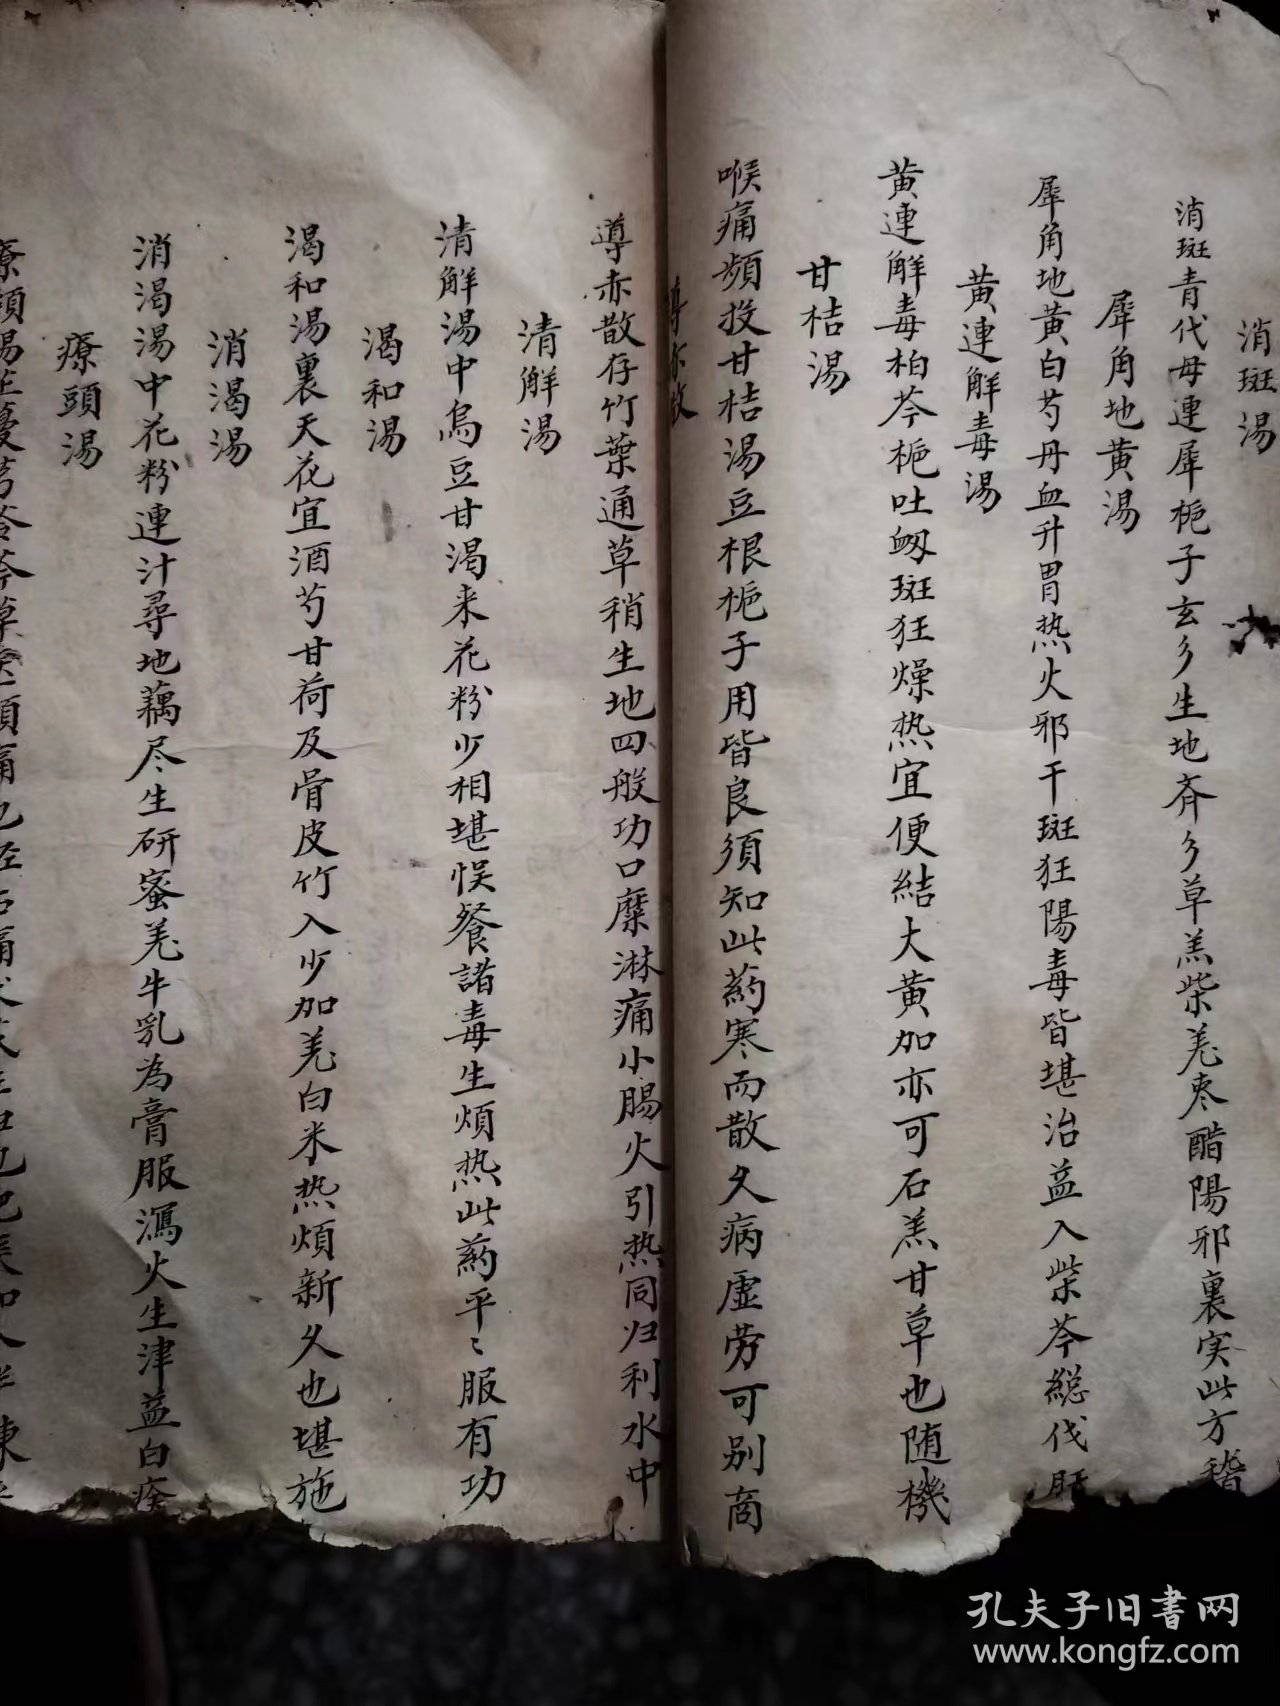 消斑湯
消斑青代毋連犀梔子玄乡生地斉乡草羔柴羌枣醋陽邪裏实此方稽
犀角地黄湯
犀角地黄白芍丹血升胃热火邪干斑狂陽毒皆堪治益入柴芩総伐肝
黄連解毒湯
黄連解毒柏芩梔吐衂斑狂燥热宜便結大黄加亦可石羔甘草也随機
甘桔湯
喉痛頻投甘桔湯豆根梔子用皆良須知此药寒而散久病虚劳可别商
導赤散
導赤散存竹葉通草稍生地四般功口糜淋痛小腸火引热同归利水中
清解湯
清解湯中烏豆甘渴来花粉少相堪悮餐諸毒生煩热此药平〻服有功
渴和湯
渴和湯裏天花宜酒芍甘荷及骨皮竹入少加羌白米热煩新久也堪施
消渴湯
消渴湯中花粉連汁尋地藕尽生研蜜羌牛乳為膏服瀉火生津益白痊
療頭湯
療頭湯芷蔓芎芩草頭痛
孔夫子旧书网
www.kongfz.com